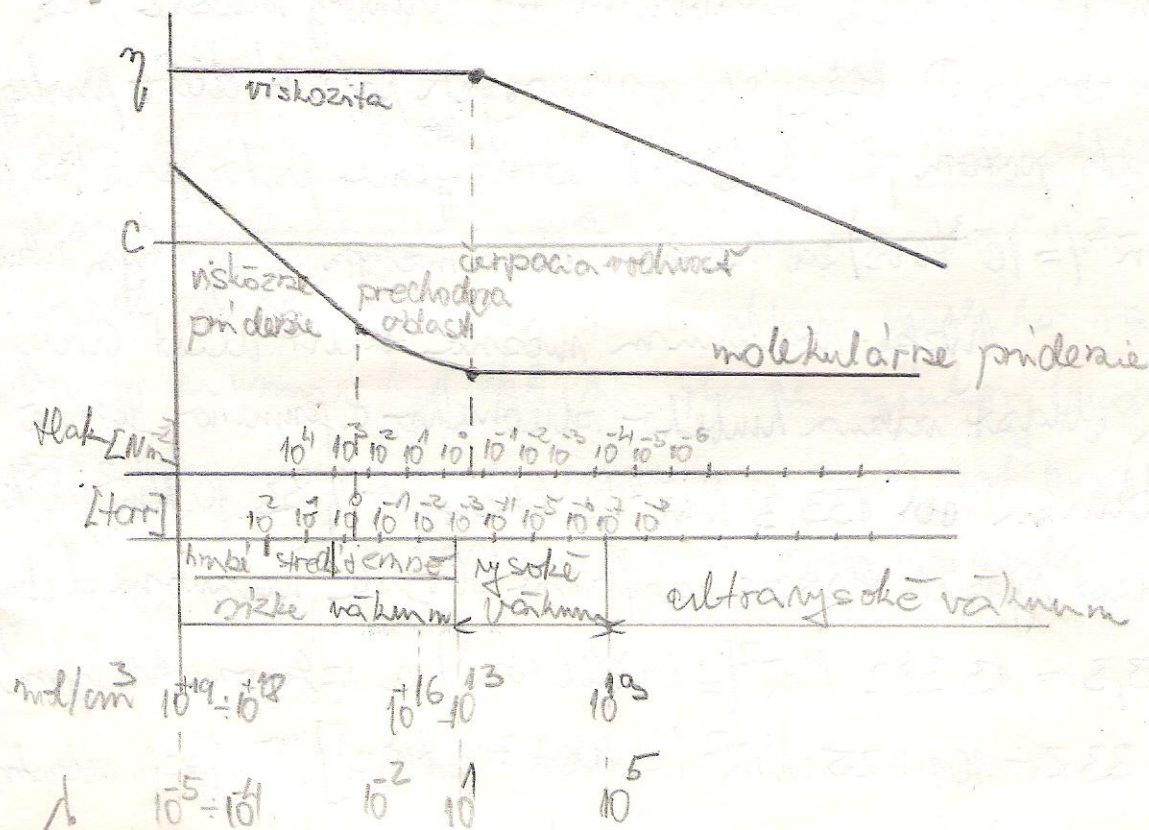 η
viskozita
C
čerpacia vodivosť
viskózne prechodna
prúdenie oblasť
molekulárne prúdenie
tlak [Nm⁻²] 10⁴ 10³ 10² 10¹ 10⁰ 10⁻¹ 10⁻² 10⁻³ 10⁻⁴ 10⁻⁵ 10⁻⁶
[torr] 10² 10¹ 10⁰ 10⁻¹ 10⁻² 10⁻³ 10⁻⁴ 10⁻⁵ 10⁻⁶ 10⁻⁷ 10⁻⁸
hrubé stred. jemné vysoké
nízke vákuum vákuum ultravysoké vákuum
mol/cm³ 10⁺¹⁹÷10⁺¹⁸ 10⁺¹⁶ 10¹³
λ 10⁻⁵÷10⁻⁴ 10⁻² 10¹ 10⁵